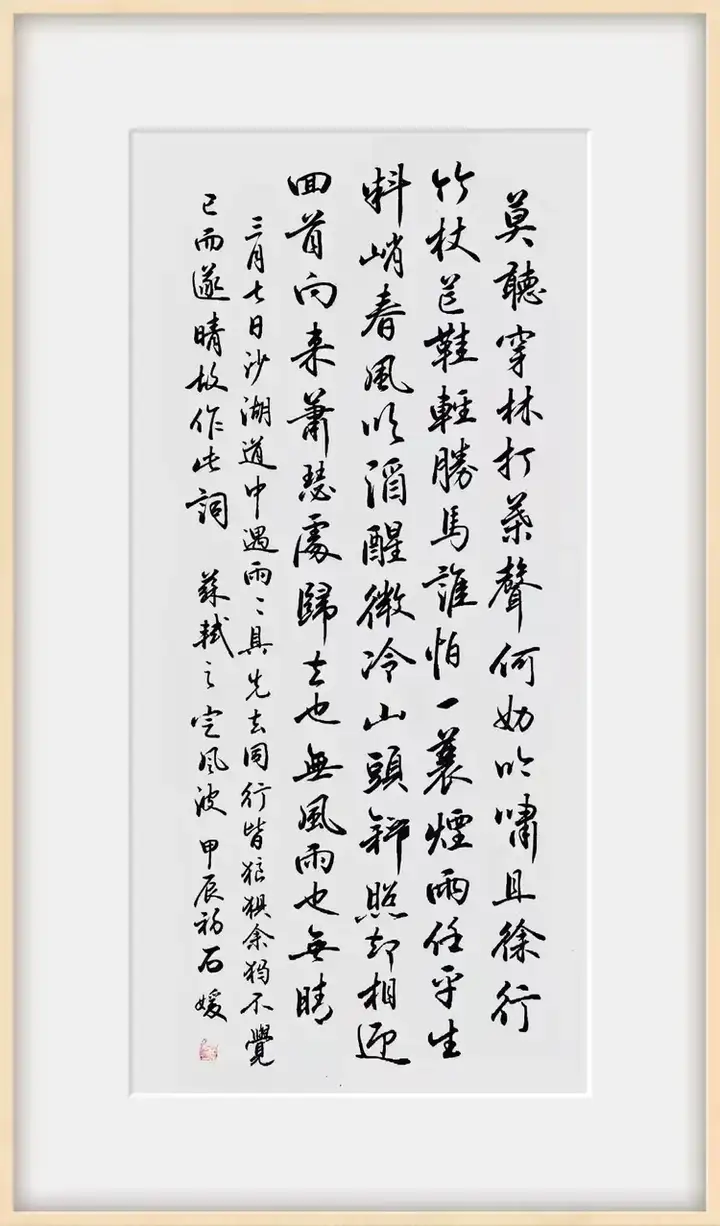 莫聽穿林打葉聲何妨吟嘯且徐行
竹杖芒鞋輕勝馬誰怕一蓑煙雨任平生
料峭春風吹酒醒微冷山頭斜照却相迎
回首向来蕭瑟處歸去也無風雨也無晴
三月七日沙湖道中遇雨〻具先去同行皆狼狽余独不覺
已而遂晴故作此詞 蘇軾之定风波 甲辰初石媛